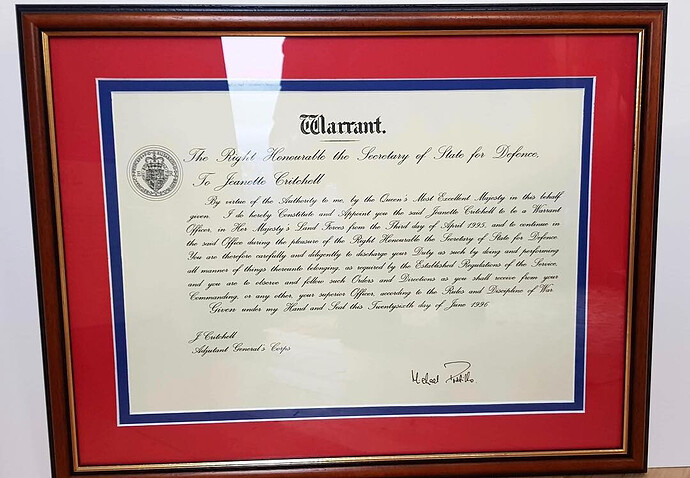 Warrant.
The Right Honourable the Secretary of State for Defence,
To Jeanette Critchell
By virtue of the Authority to me, by the Queen's Most Excellent Majesty in this behalf
given I do hereby Constitute and Appoint you the said Jeanette Critchell to be a Warrant
Officer, in Her Majesty's Land Forces from the Third day of April 1995, and to continue in
the said Office during the pleasure of the Right Honourable the Secretary of State for Defence.
You are therefore carefully and diligently to discharge your Duty as such by doing and performing
all manner of things thereunto belonging, as required by the Established Regulations of the Service,
and you are to observe and follow such Orders and Directions as you shall receive from your
Commanding, or any other, your superior Officer, according to the Rules and Discipline of War.
Given under my Hand and Seal this Twentysixth day of June 1996
J Critchell
Adjutant General's Corps
Michael Portillo